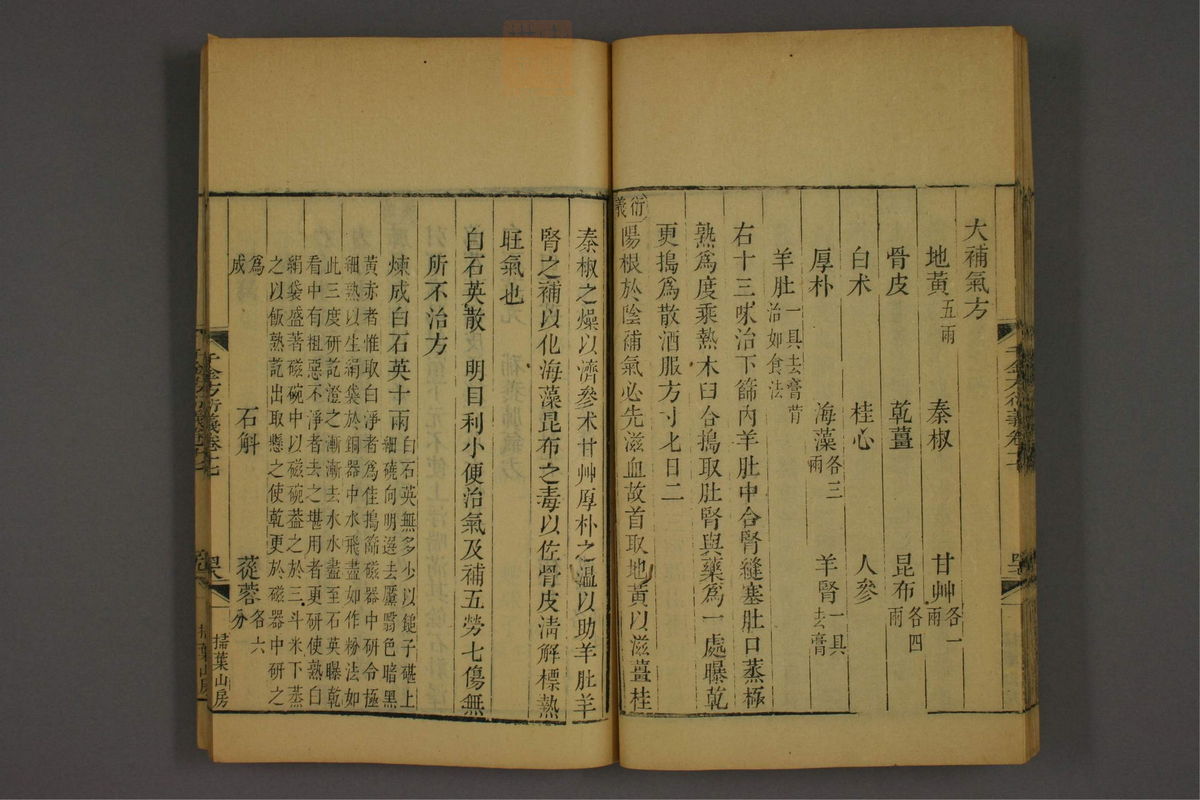 大補氣方
地黃五兩 秦椒 甘艸各一兩
骨皮 乾薑 昆布各四兩
白术 桂心 人參
厚朴 海藻各三兩 羊腎一具去膏
羊肚一具去膏䏚治如食法
右十三味治下篩內羊肚中合腎縫塞肚口蒸極
熟為度乘熱木臼合搗取肚腎與藥為一處曝乾
更搗為散酒服方寸匕日二
衍義 陽根於陰補氣必先滋血故首取地黃以滋薑桂
秦椒之燥以濟參术甘艸厚朴之溫以助羊肚羊
腎之補以化海藻昆布之毒以佐骨皮淸解標熱
旺氣也
白石英散 明目利小便治氣及補五勞七傷無
所不治方
煉成白石英十兩白石英無多少以鎚子碪上
細磽向明選去黶翳色暗黑
黃赤者惟取白淨者為佳搗篩磁器中研令極
細熟以生絹袋於銅器中水飛盡如作粉法如
此三度研訖澄之漸漸去水水盡至石英曝乾
看中有粗惡不淨者去之堪用者更研使熟白
絹袋盛著磁碗中以磁碗蓋之於三斗米下蒸
之以飯熟訖出取懸之使乾更於磁器中研之
為成 石斛 蓯蓉各六分
千金方衍義卷十七
掃葉山房